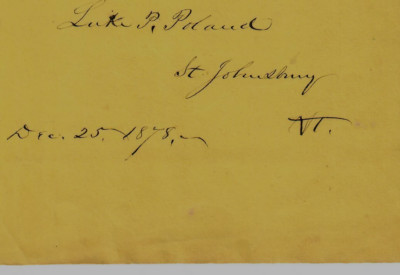 Luke P. Poland
St. Johnsbury
Vt.
Dec. 25, 1878,